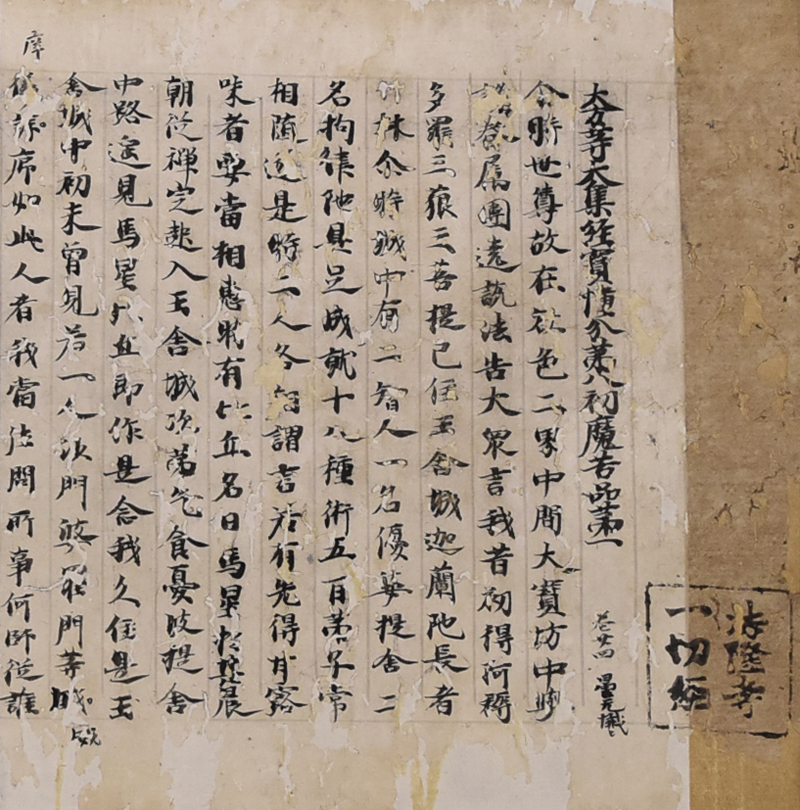 法隆寺
一切經
大方等大集經寶幢分第八初魔苦品第一
卷廿四 曇無讖
尒時世尊故在欲色二界中間大寶坊中与
諸眷属圍遶說法告大衆言我昔初得阿耨
多羅三藐三菩提已住王舍城迦蘭陁長者
竹林尒時城中有二智人一名優婆提舍二
名拘律陁具足成就十八種術五百弟子常
相隨逐是時二人各相謂言若有先得甘露
味者要當相惠時有比丘名曰馬星於其晨
朝從禪定起入王舍城次第乞食憂波提舍
中路遥見馬星比丘即作是念我久住是王
舍城中初未曾見若一人沙門婆羅門等威
庠
儀庠序如此人者我當往問所事何師從誰